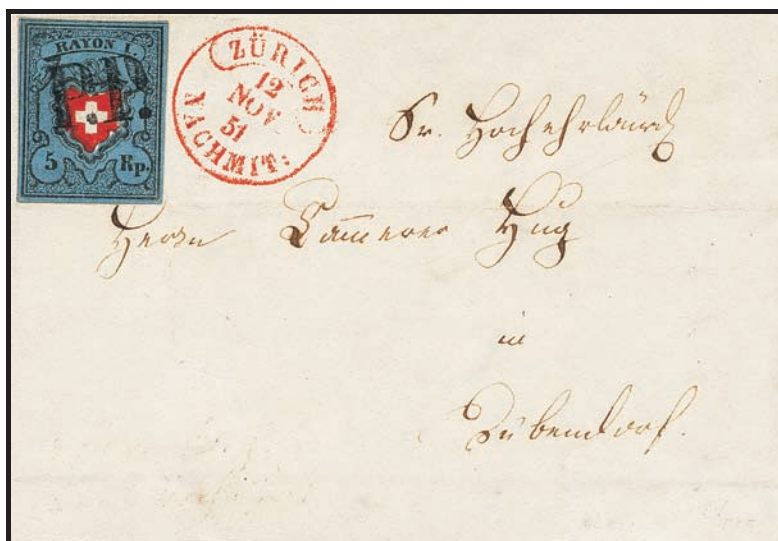 RAYON I.
P.P.
5 Rp.
ZÜRICH
12
NOV
51
NACHMIT:
Sr. Hochehrwürd
Herrn Camerer Hug
in
Dübendorf.